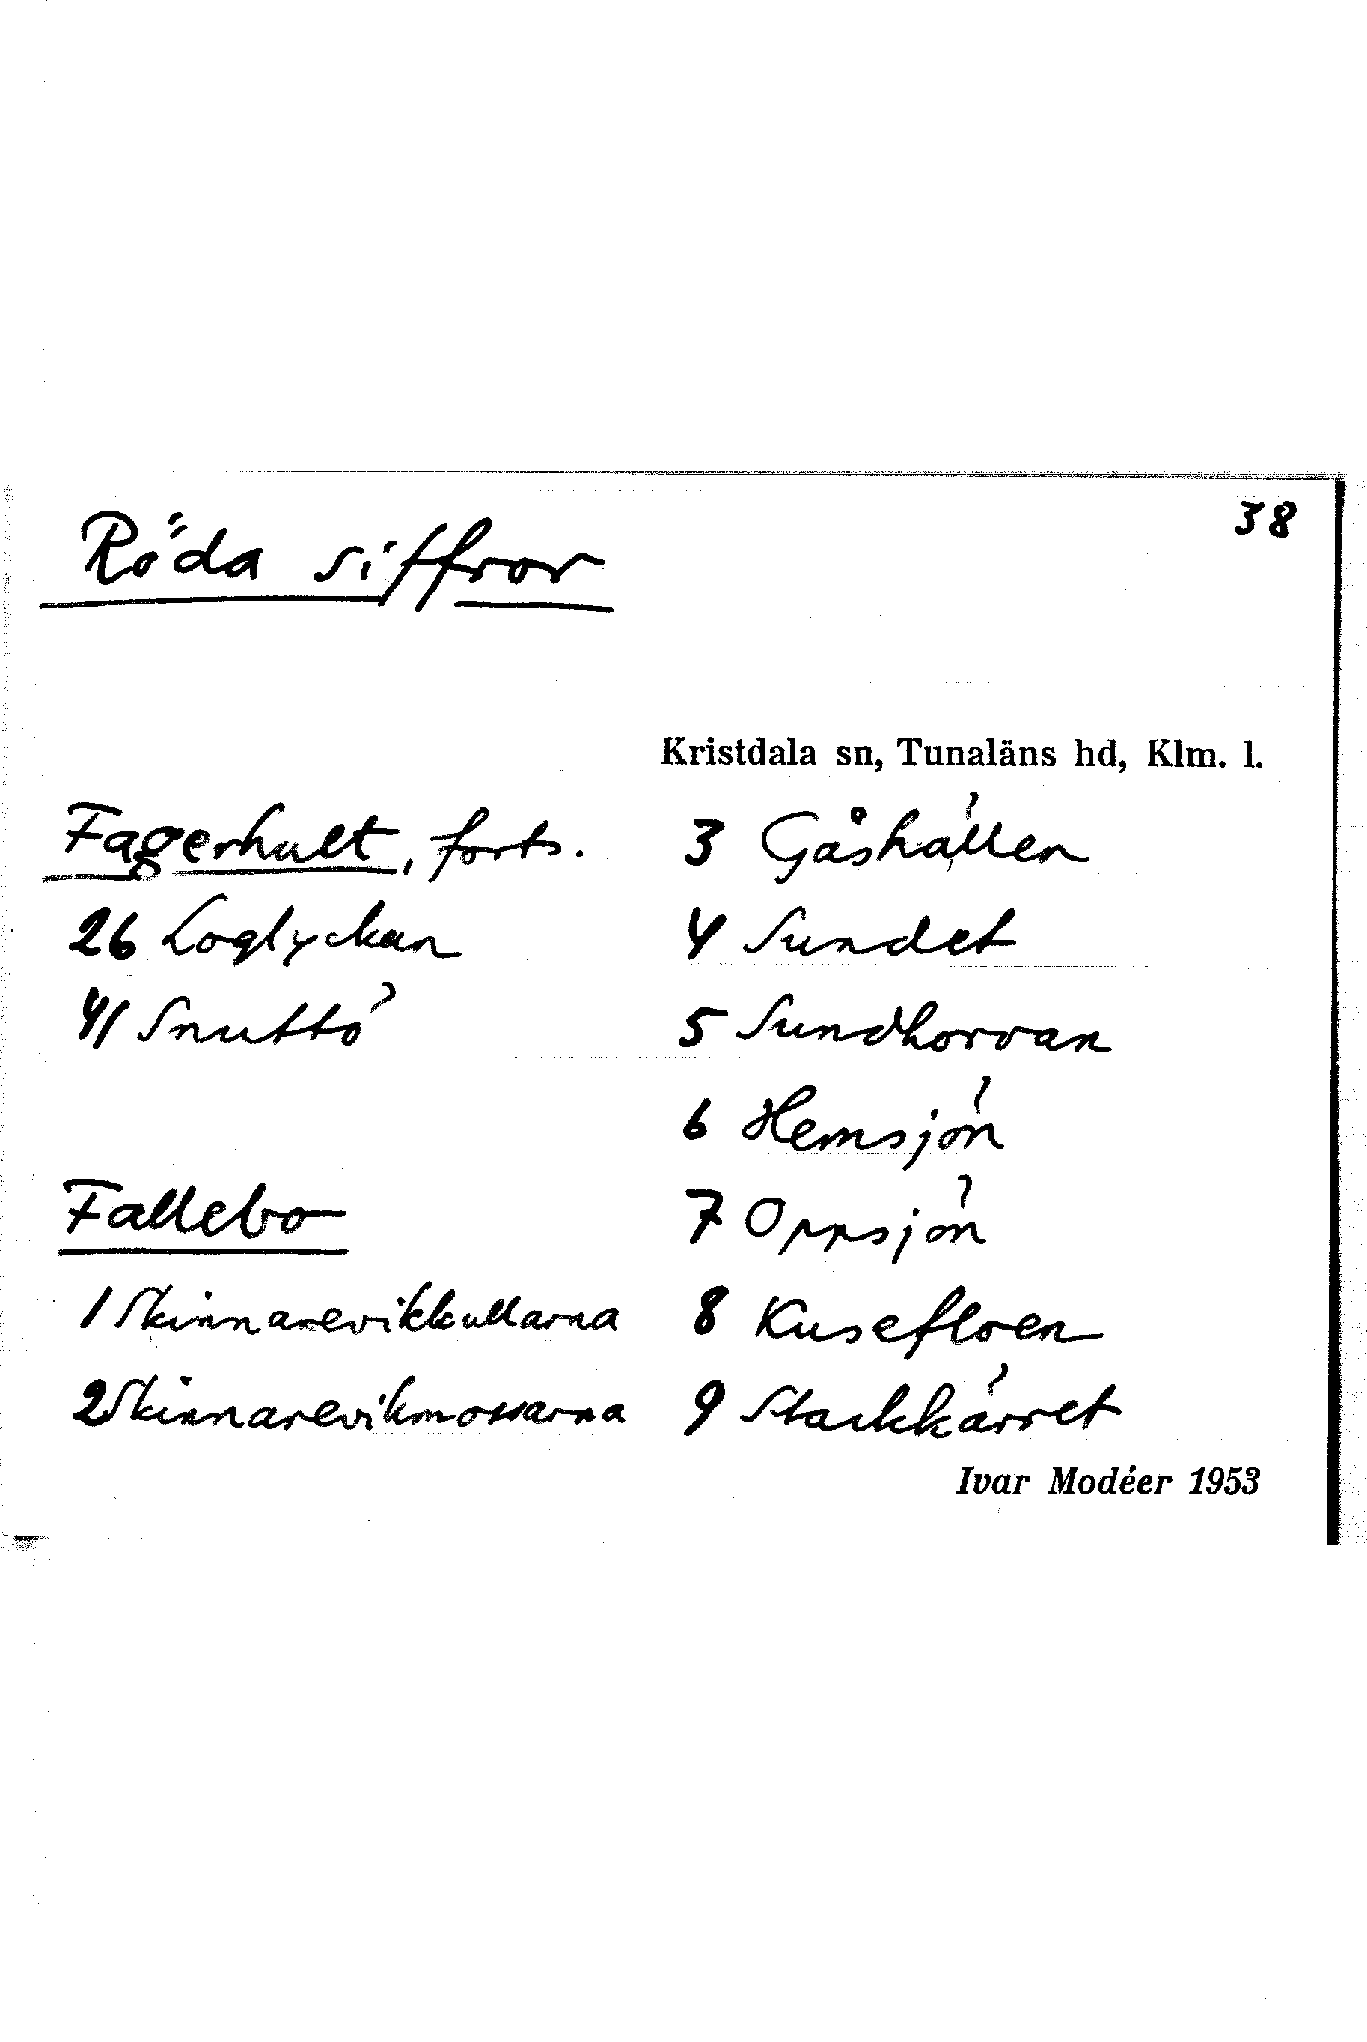 38
Röda siffror
Kristdala sn, Tunaläns hd, Klm. l.
Fagerhult, forts.
26 Loglyckan
41 Snuttö
Fallebo
1 Skinnarevikkullarna
2 Skinnarevikmossarna
3 Gåshällen
4 Sundet
5 Sundhorvan
6 Hemsjön
7 Oppsjön
8 Kusefloen
9 Stackkärret
Ivar Modéer 1953